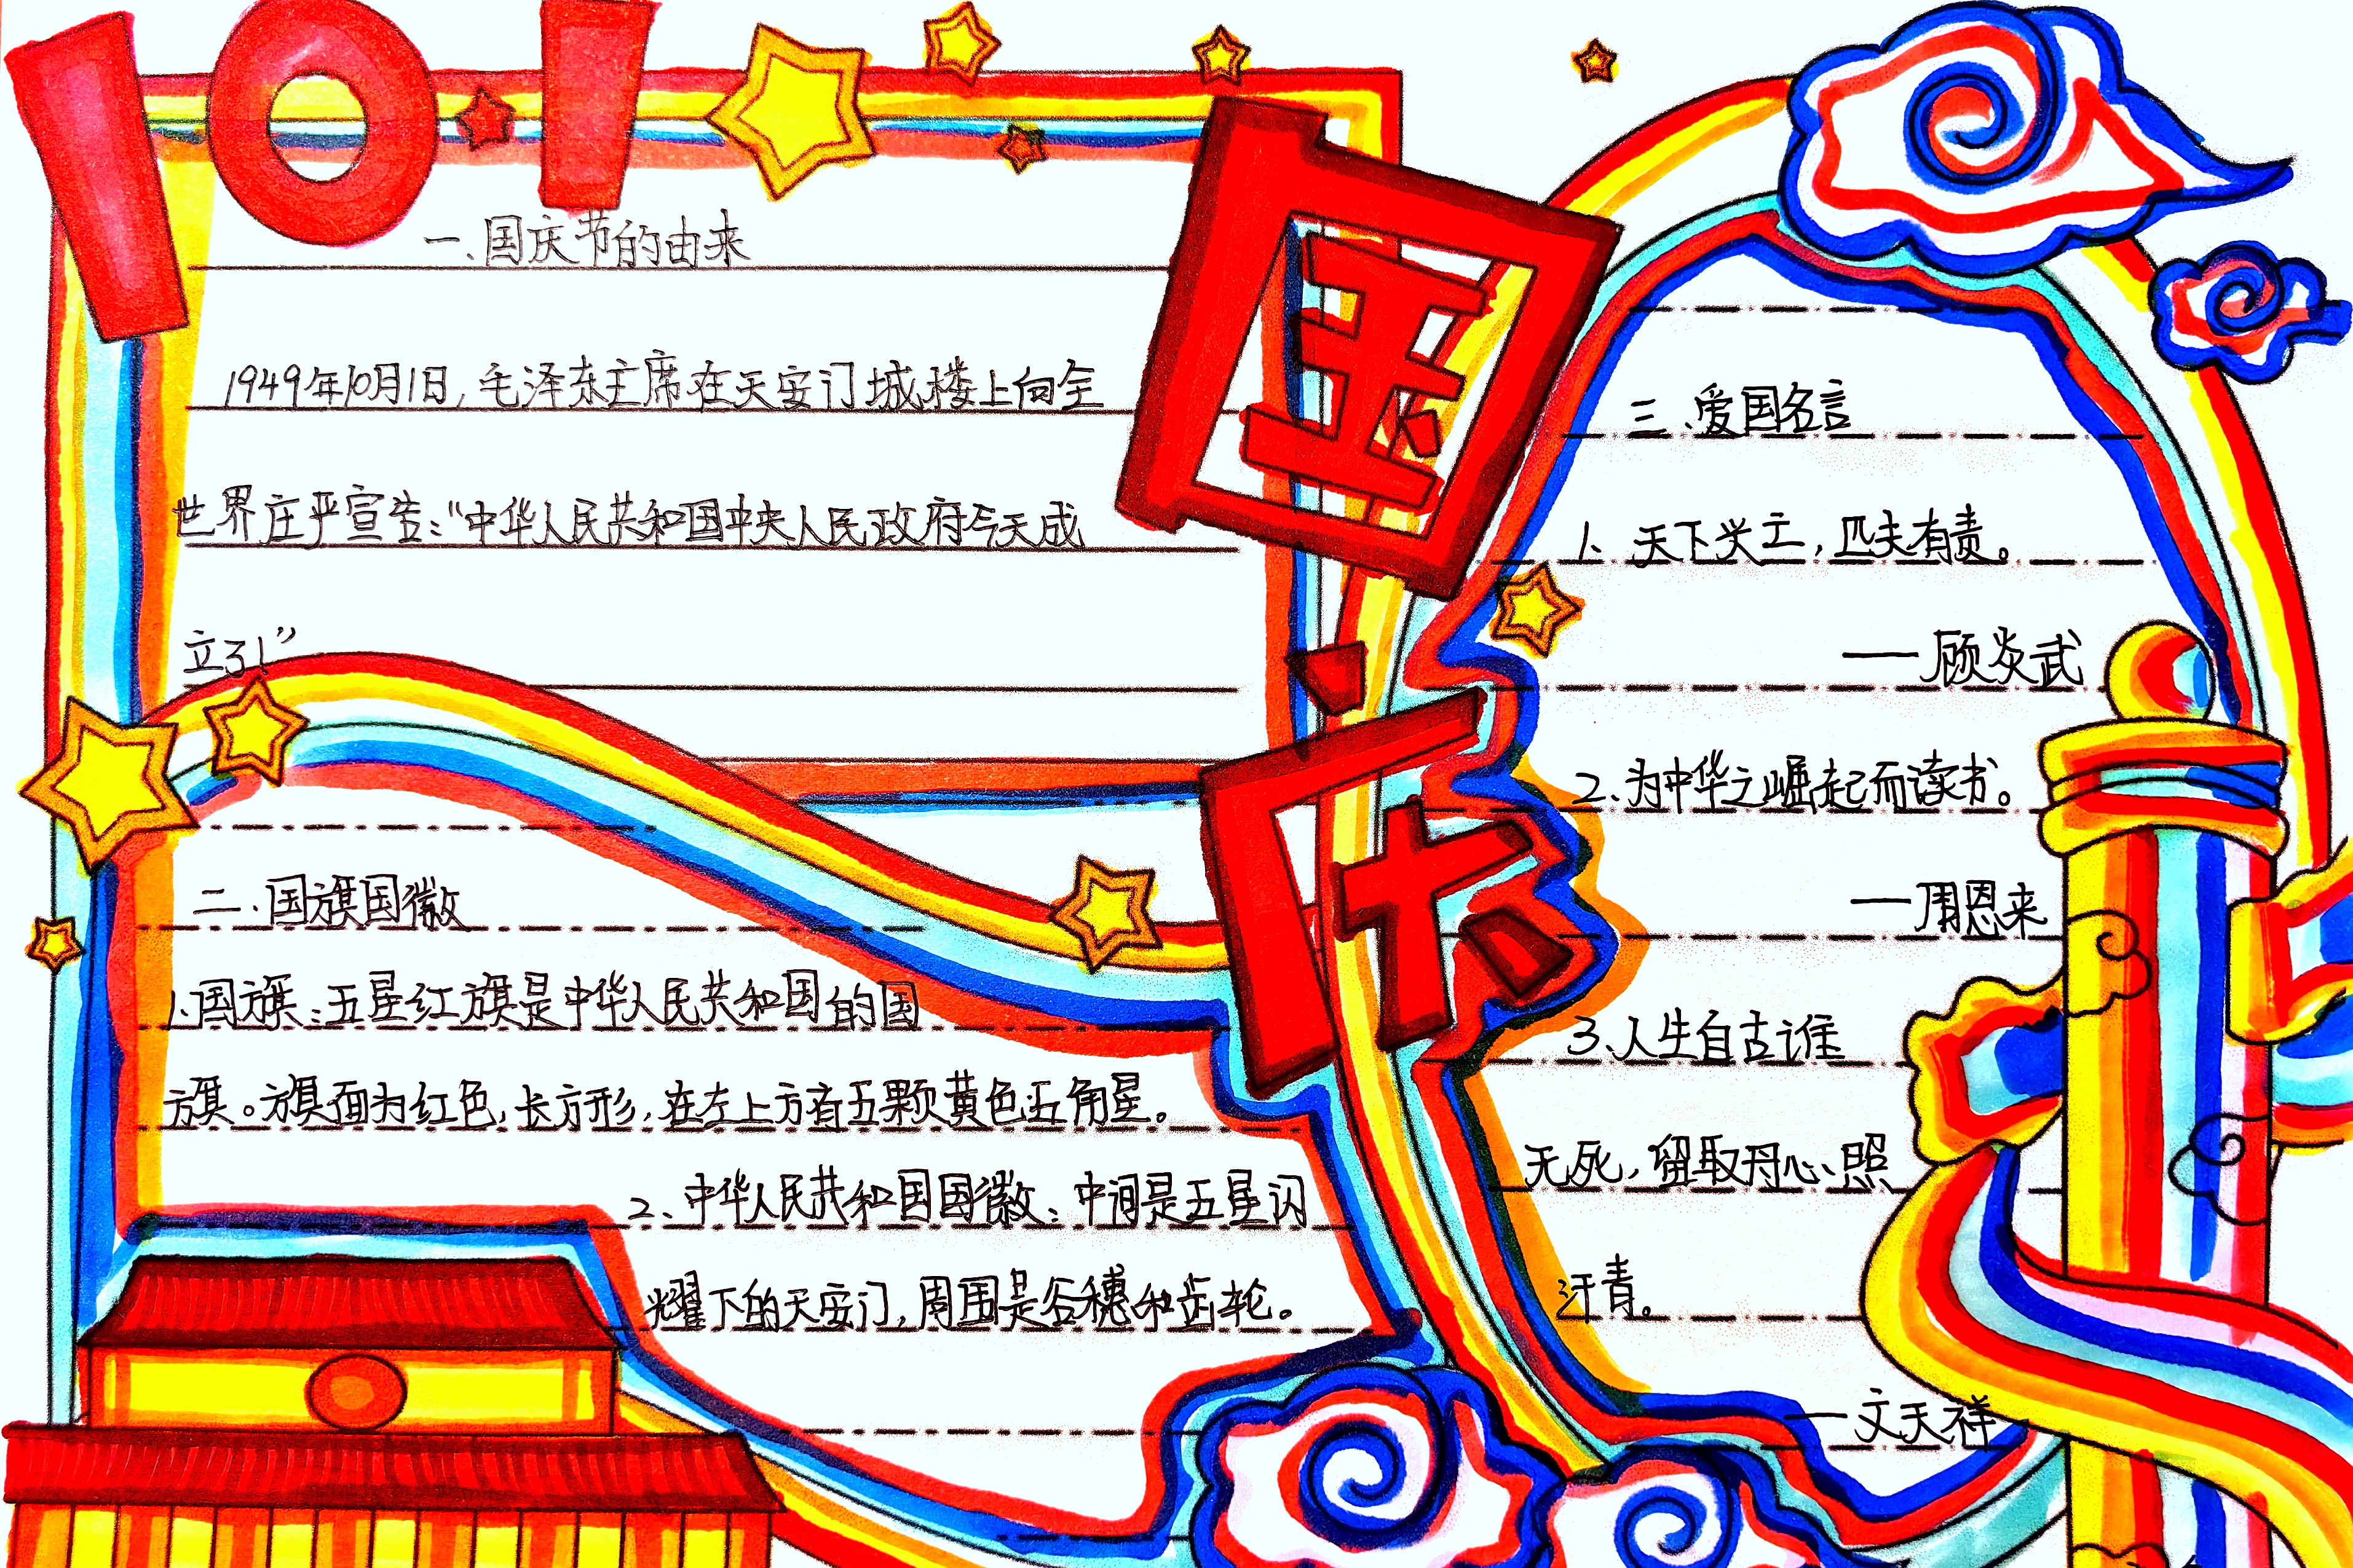 10.1
国庆
一、国庆节的由来
1949年10月1日，毛泽东主席在天安门城楼上向全
世界庄严宣告：“中华人民共和国中央人民政府今天成
立了！”
二、国旗国徽
1、国旗：五星红旗是中华人民共和国的国
旗。旗面为红色，长方形，在左上方有五颗黄色五角星。
2、中华人民共和国国徽：中间是五星闪
耀下的天安门，周围是谷穗和齿轮。
三、爱国名言
1、天下兴亡，匹夫有责。
——顾炎武
2、为中华之崛起而读书。
——周恩来
3、人生自古谁
无死，留取丹心照
汗青。
——文天祥